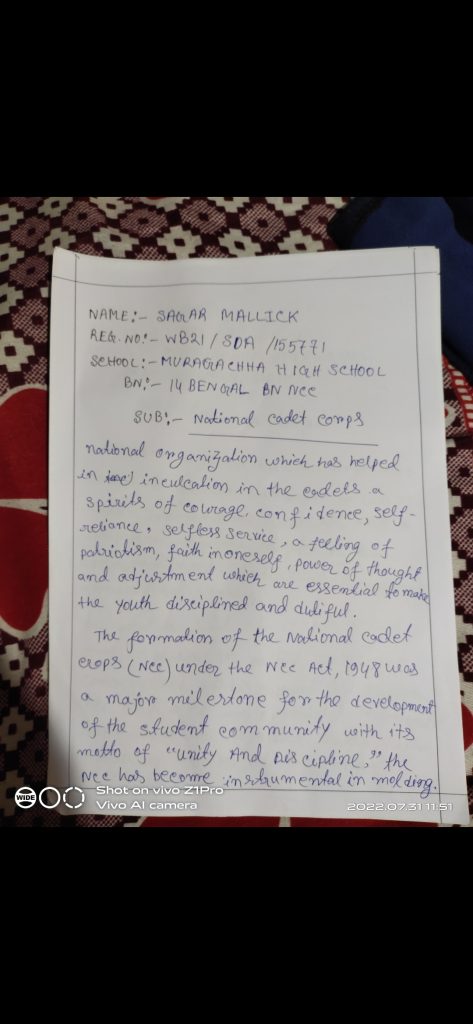 NAME:- SAGAR MALLICK
REG. NO:- WB21/SDA/155771
SCHOOL:- MURAGACHHA HIGH SCHOOL
BN:- 14 BENGAL BN NCC
SUB:- National cadet corps
national organization which has helped
in inculcation in the cadets a
spirits of courage, confidence, self-
reliance, selfless service, a feeling of
patriotism, faith in oneself, power of thought
and adjustment which are essential to make
the youth disciplined and dutiful.
The formation of the National cadet
crops (NCC) under the NCC Act, 1948 was
a major milestone for the development
of the student community with its
motto of "unity And Discipline," the
NCC has become instrumental in molding.
WIDE
Shot on vivo Z1Pro
Vivo AI camera
2022.07.31 11:51